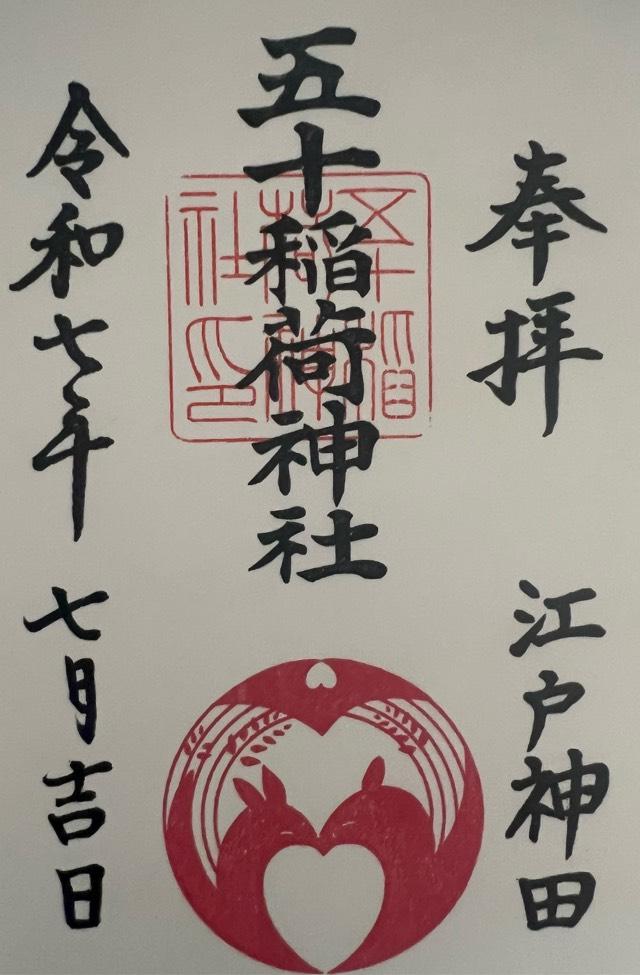 奉拝
江戸神田
五十稲荷神社
五十稲荷神社印
令和七年
七月吉日